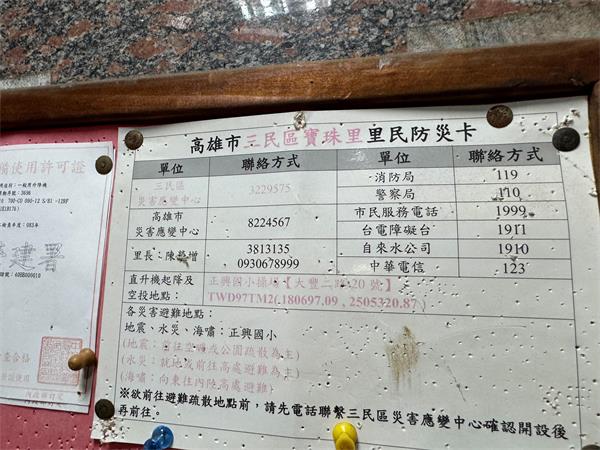 高雄市三民區寶珠里里民防災卡
單位 聯絡方式 單位 聯絡方式
三民區
災害應變中心 3229575
高雄市
災害應變中心 8224567
里長：陳 增 3813135
0930678999
消防局 119
警察局 110
市民服務電話 1999
台電障礙台 1911
自來水公司 1910
中華電信 123
直升機起降及
空投地點：
正興國小操場【大豐二路20號】
TWD97TM2(180697.09 , 2505320.87 )
各災害避難地點：
地震、水災、海嘯：正興國小
(地震：當往空曠或公園疏散為主)
(水災：就地或前往高處避難為主)
(海嘯：向東往內陸高處避難)
※欲前往避難疏散地點前，請先電話聯繫三民區災害應變中心確認開設後
再前往。
使用許可證
一般用升降機
3696
700-CO 090-12 S/81 -12BF
建署